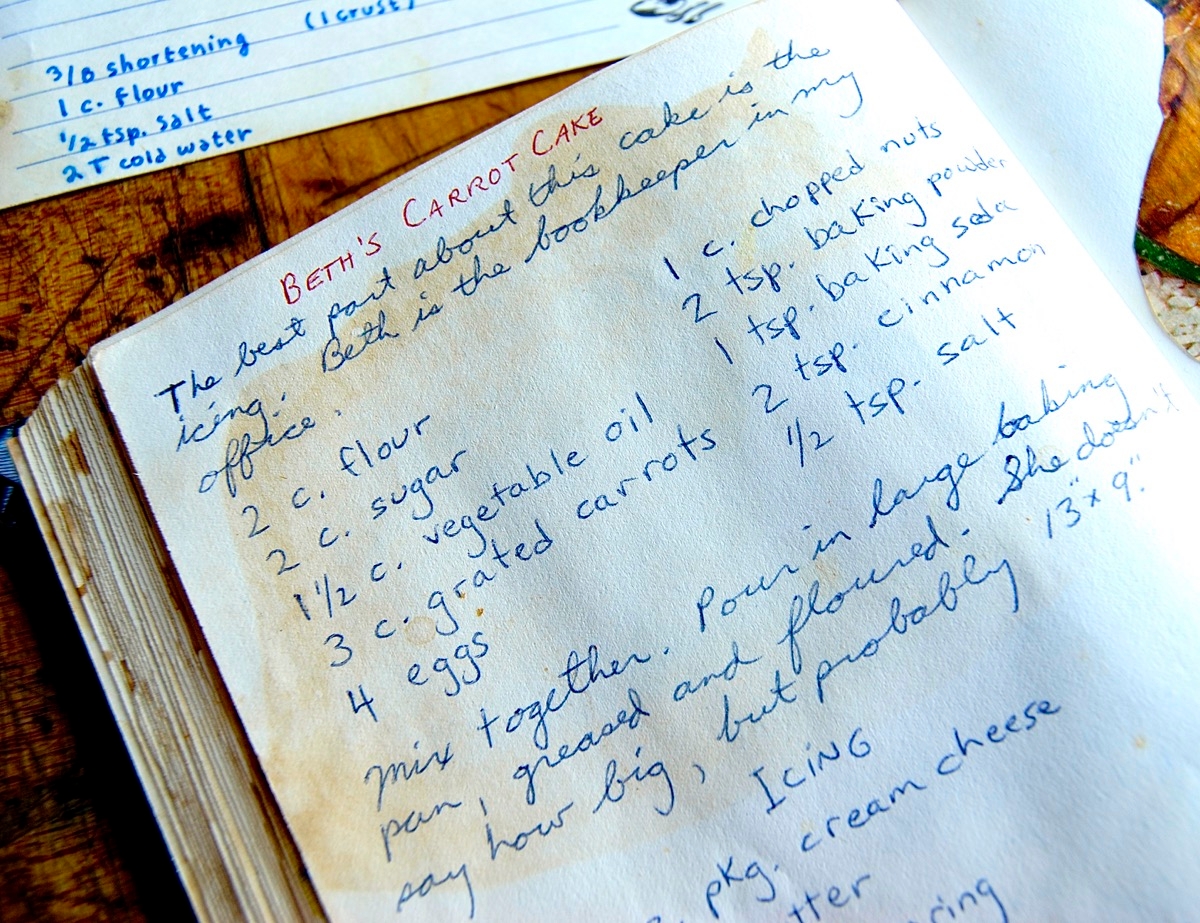 (1 crust)
3/8 shortening
1 c. flour
1/2 tsp. salt
2 T cold water
BETH'S CARROT CAKE
The best part about this cake is the
icing. Beth is the bookkeeper in my
office.
2 c. flour
2 c. sugar
1 1/2 c. vegetable oil
3 c. grated carrots
4 eggs
1 c. chopped nuts
2 tsp. baking powder
1 tsp. baking soda
2 tsp. cinnamon
1/2 tsp. salt
Mix together. Pour in large baking
pan, greased and floured. She doesn't
say how big, but probably 13" x 9."
ICING
pkg. cream cheese